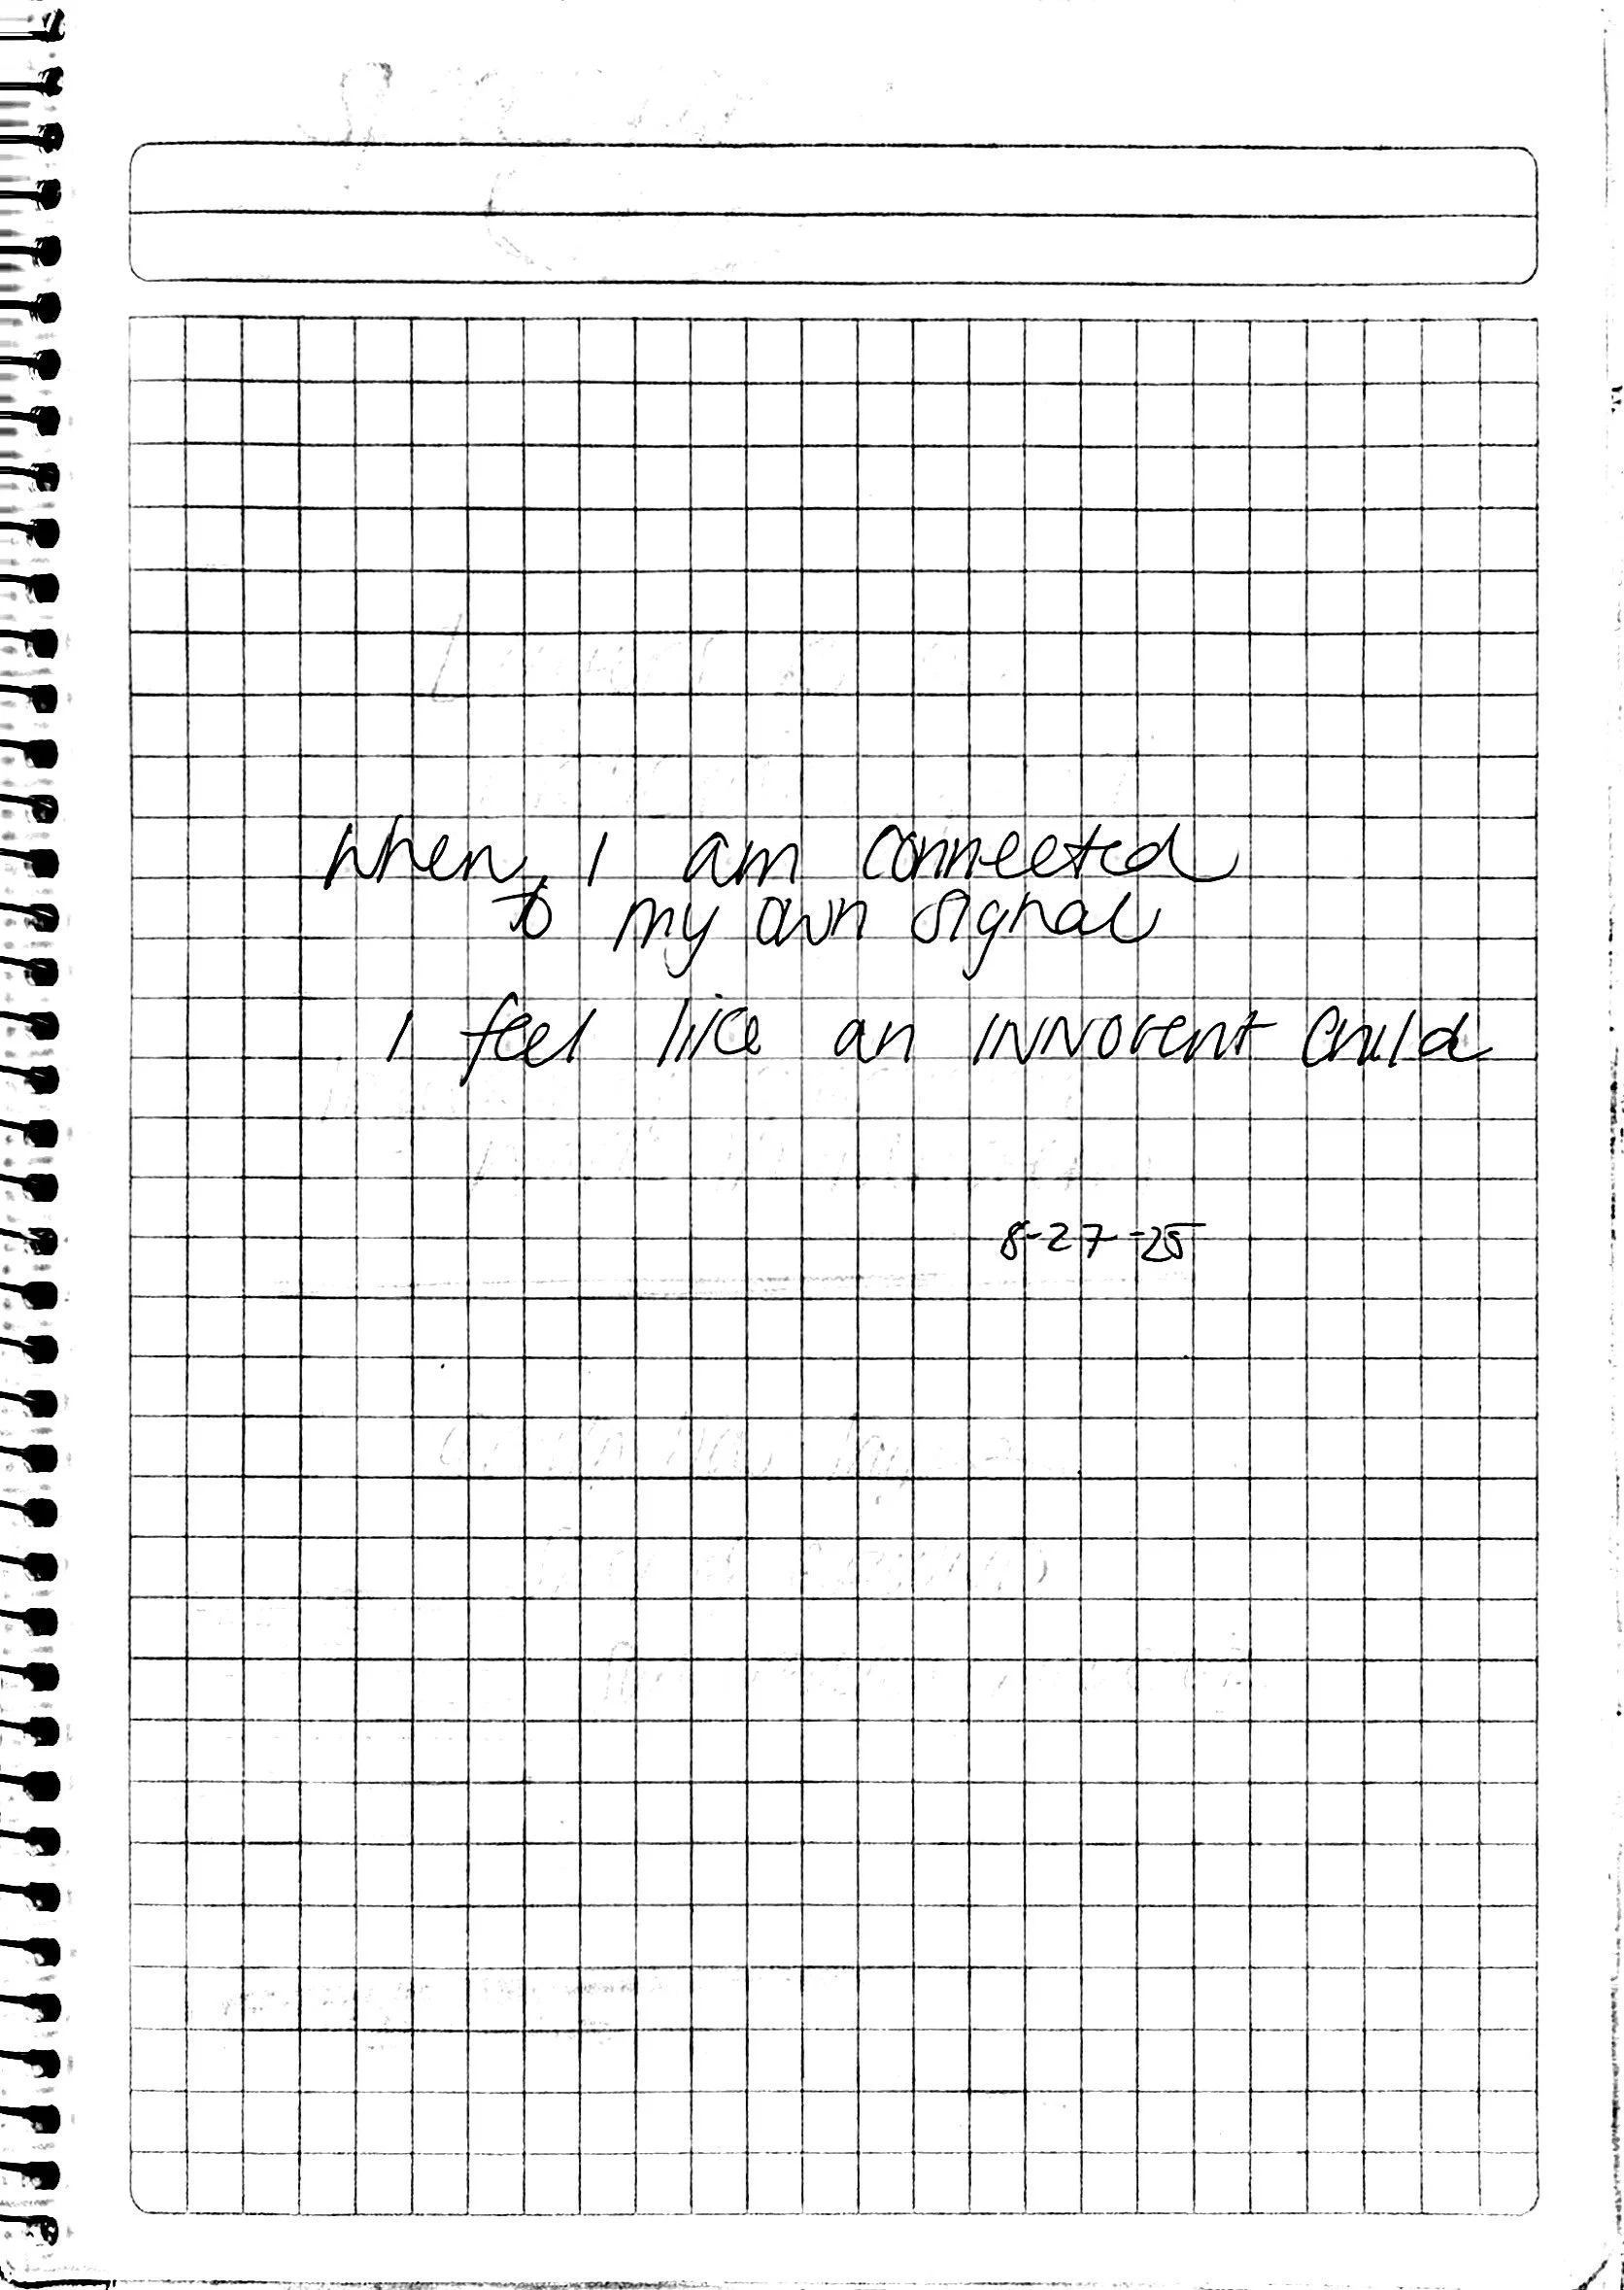 When I am connected
to my own signal
I feel like an INNOCENT child
8-27-25